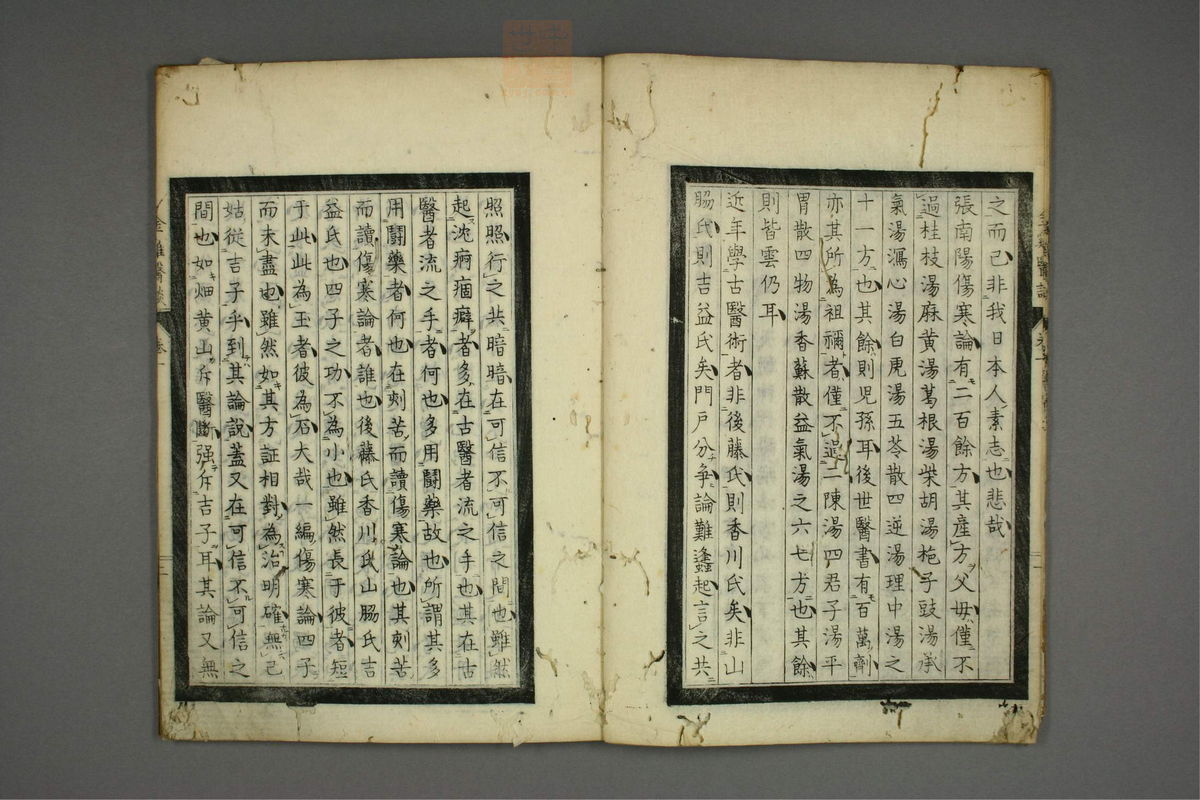 之而已非我日本人素志也悲哉
張南陽傷寒論有二百餘方其産方父毋僅不
過桂枝湯麻黄湯葛根湯柴胡湯梔子豉湯承
氣湯瀉心湯白虎湯五苓散四逆湯理中湯之
十一方也其餘則児孫耳後世醫書有百萬劑
亦其所為祖禰者僅不過二陳湯四君子湯平
胃散四物湯香蘇散益氣湯之六七方也其餘
則皆雲仍耳
近年學古醫術者非後藤氏則香川氏矣非山
脇氏則吉益氏矣門戸分争論難蠭起言之共
照照行之共暗暗在可信不可信之間也雖然
起沈痾痼癖者多在古醫者流之手也其在古
醫者流之手者何也多用鬪藥故也所謂其多
用鬪藥者何也在刻苦而讀傷寒論也其刻苦
而讀傷寒論者誰也後藤氏香川氏山脇氏吉
益氏也四子之功不為小也雖然長于彼者短
于此此為玉者彼為石大哉一編傷寒論四子
而未盡也雖然如其方証相對為治明確無已
姑從吉子乎到其論説蓋又在可信不可信之
間也如畑黄山斥醫斷强斥吉子耳其論又無